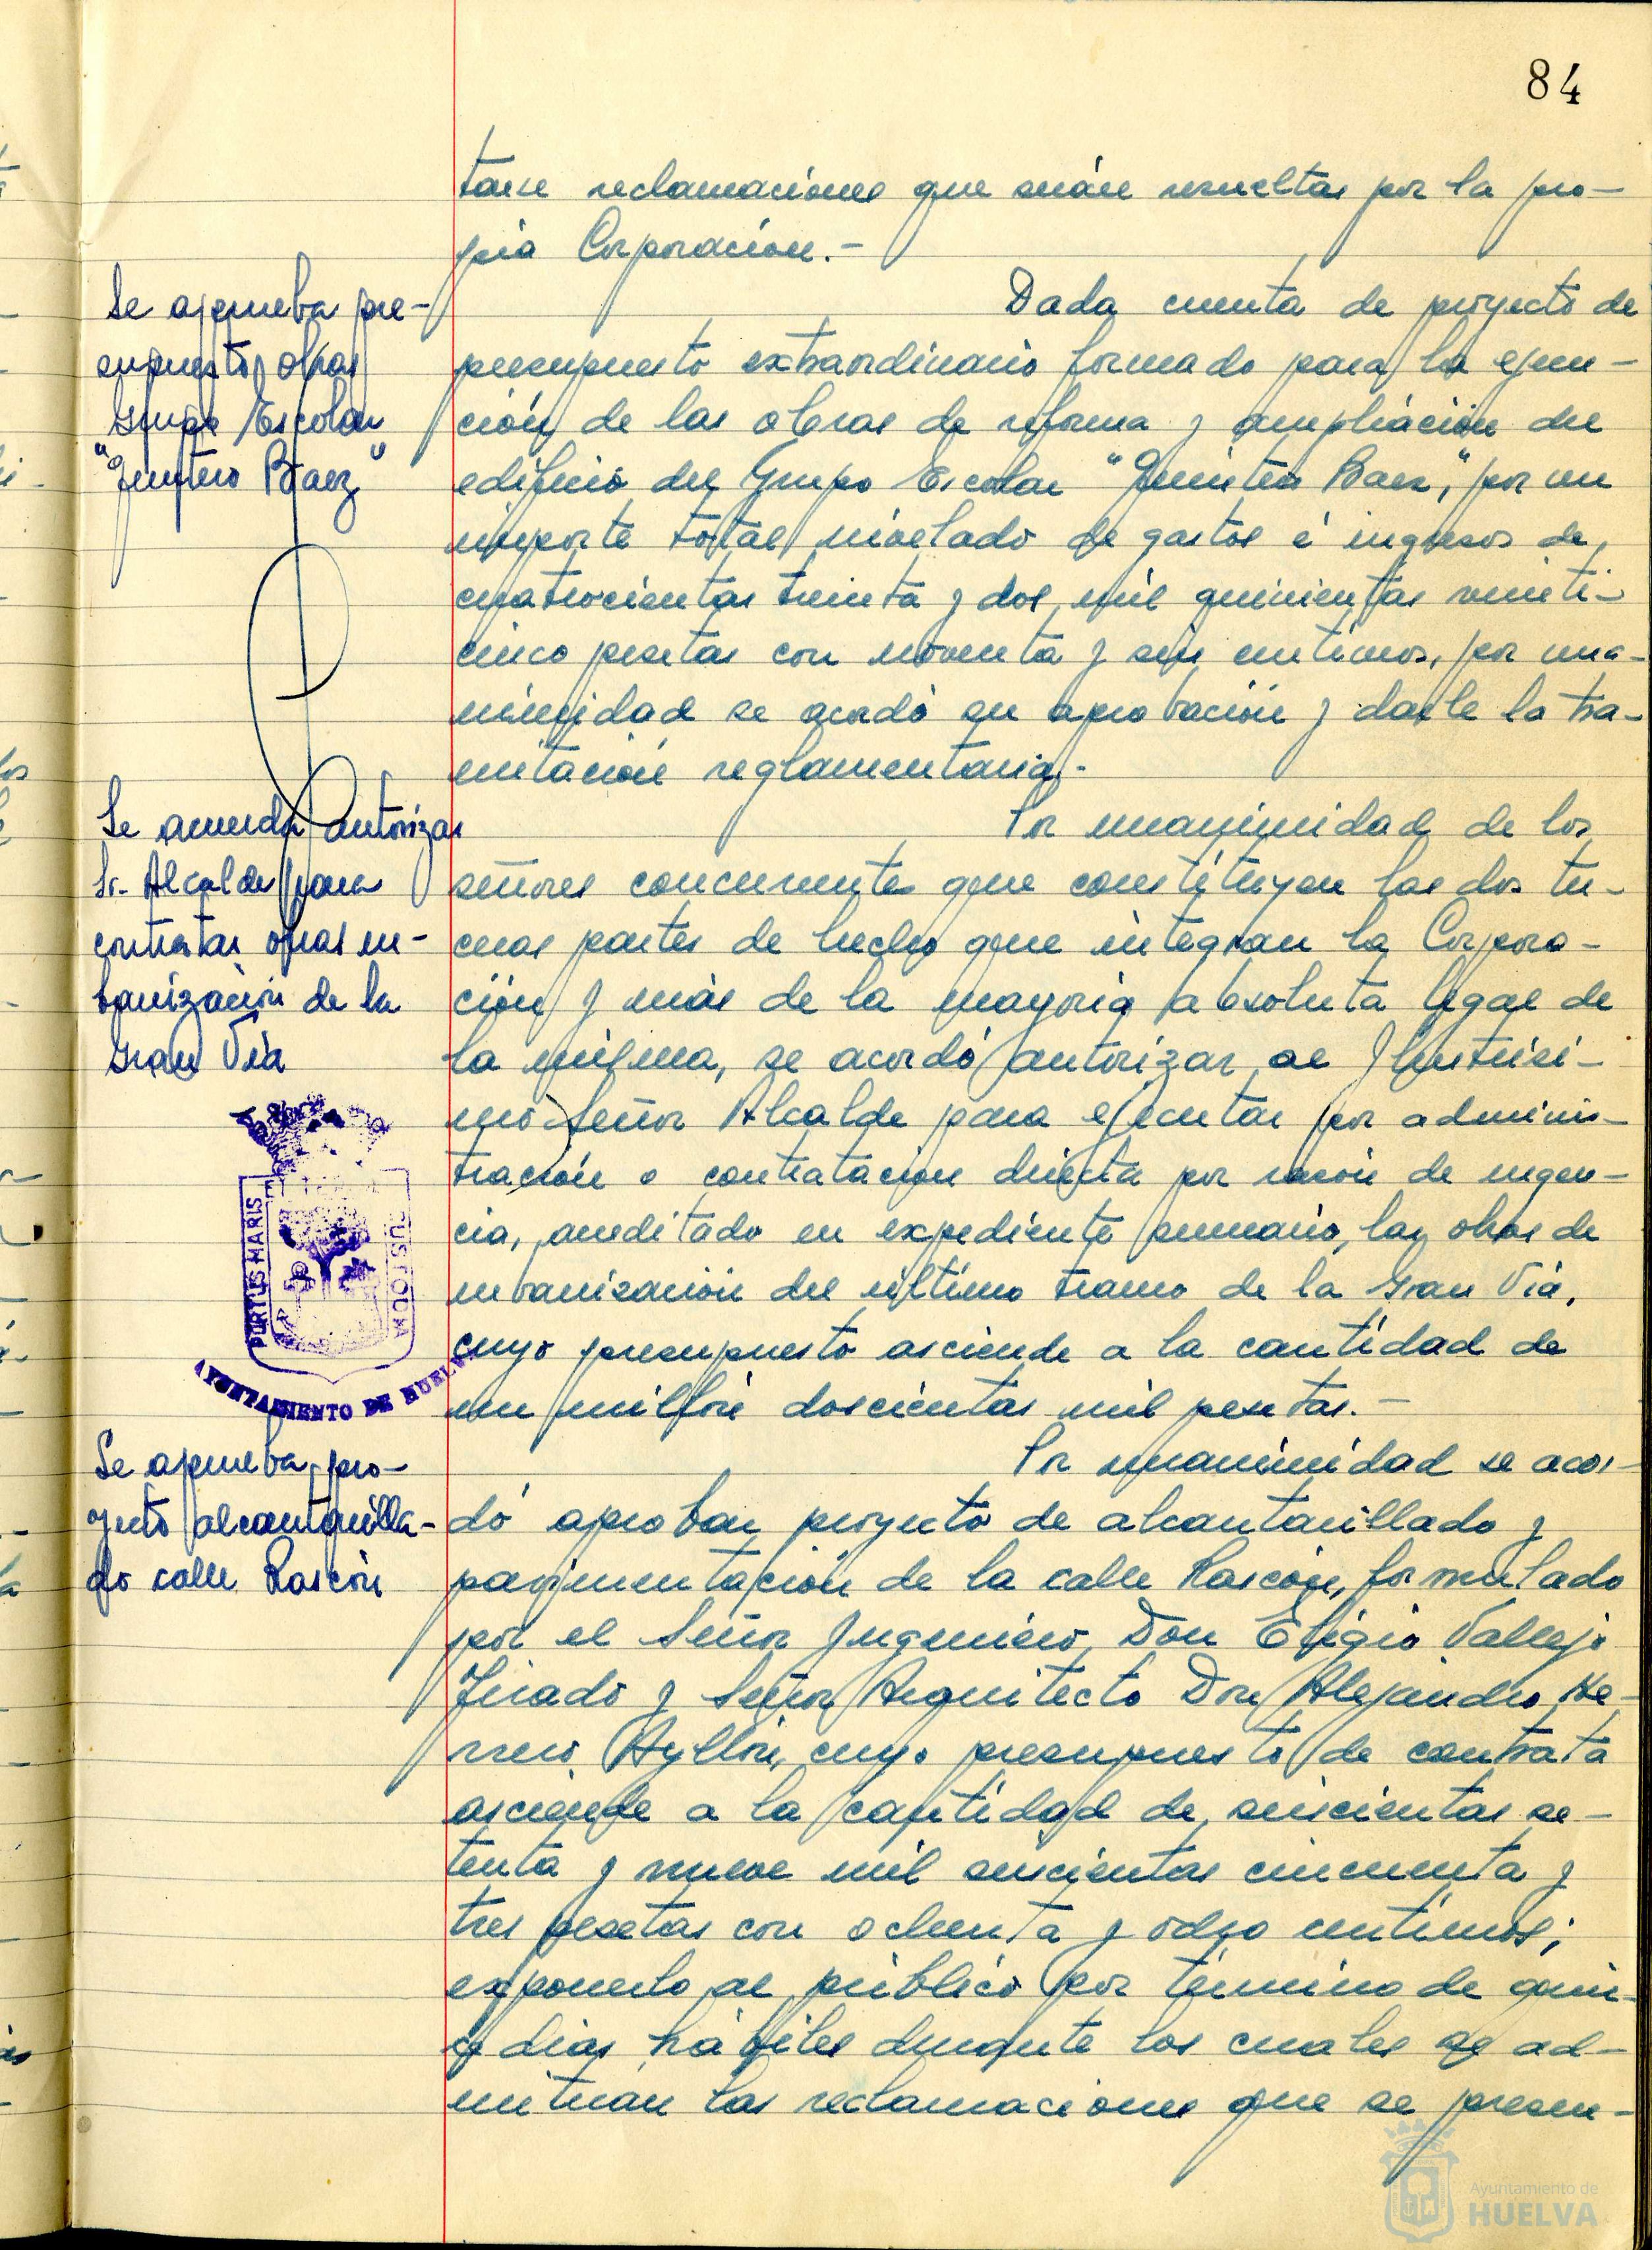 84
tarse reclamaciones que serán resueltas por la pro-
pia Corporación.-
Se aprueba pre-
supuesto obras
Grupo Escolar
"Quintero Baez"
Dada cuenta de proyecto de
presupuesto extraordinario formado para la ejecu-
ción de las obras de reforma y ampliación del
edificio del Grupo Escolar "Quintero Baez", por un
importe total nivelado de gastos é ingresos de
cuatrocientas treinta y dos mil quinientas veinti-
cinco pesetas con noventa y seis centimos, por una-
nimidad se acordó su aprobación y darle la tra-
mitación reglamentaria.-
Se acuerda autorizar
Sr. Alcalde para
contratar obras ur-
banización de la
Gran Vía
Por unanimidad de los
señores concurrentes que constituyen las dos ter-
ceras partes de hecho que integran la Corpora-
ción y más de la mayoria absoluta legal de
la misma, se acordó autorizar al Ilustrísi-
mo Señor Alcalde para ejecutar por adminis-
tración o contratación directa por razón de urgen-
cia, acreditado en expediente sumario, las obras de
urbanización del último tramo de la Gran Vía,
cuyo presupuesto asciende a la cantidad de
un millón doscientas mil pesetas.-
PORTUS MARIS
ET
CUSTODIA
AYUNTAMIENTO DE HUELVA
Se aprueba pro-
yecto alcantarilla-
do calle Rascón
Por unanimidad se acor-
dó aprobar proyecto de alcantarillado y
pavimentación de la calle Rascón, formulado
por el Señor Ingeniero Don Eligio Vallejo
Jurado y Señor Arquitecto Don Alejandro He-
rrero Ayllón, cuyo presupuesto de contrata
asciende a la cantidad de seiscientas se-
tenta y nueve mil seiscientas cincuenta y
tres pesetas con ochenta y ocho centimos;
exponerlo al público por término de quin-
ce dias hábiles durante los cuales se ad-
mitirán las reclamaciones que se presen-
Ayuntamiento de
HUELVA